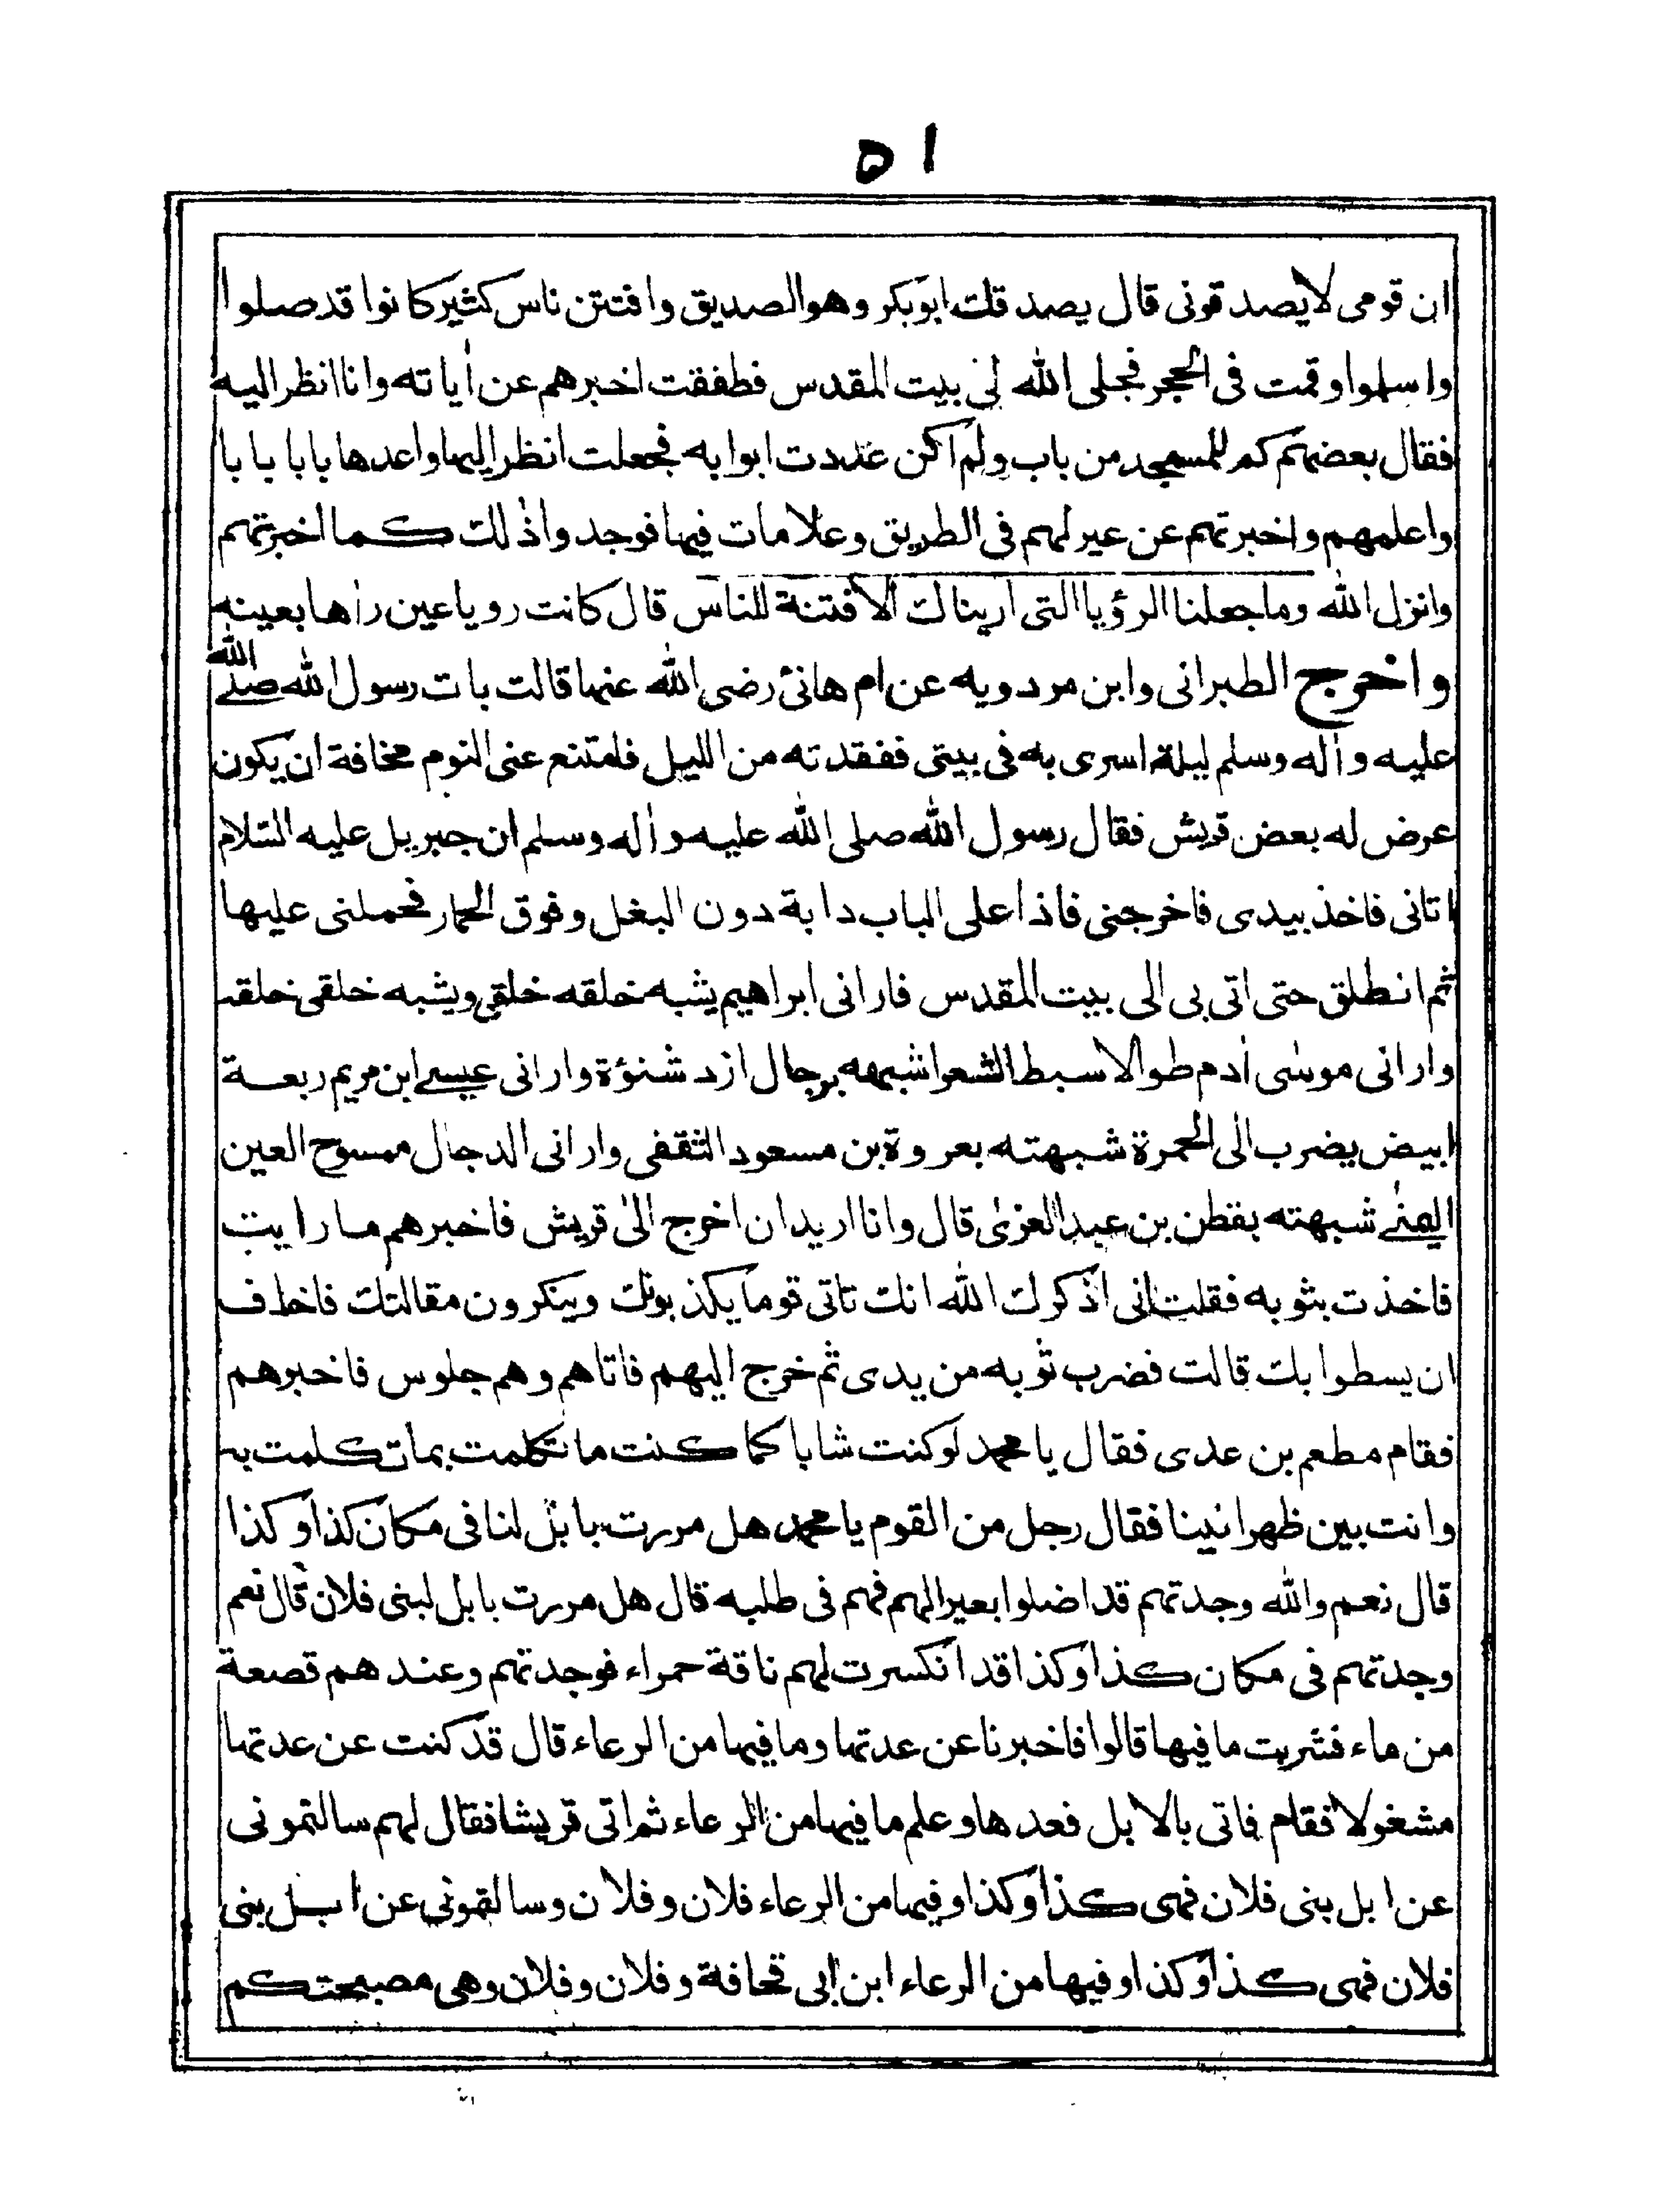 ٥١
ان قومى لايصدقونى قال يصدقك ابوبكر وهو الصديق وافتتن ناس كثير كانوا قد صلوا
واسلموا وقمت فى الحجر فجلى الله لى بيت المقدس فطفقت اخبرهم عن أياته وانا انظر اليه
فقال بعضهم كم للمسجد من باب ولم اكن عددت ابوابه فجعلت انظر اليها واعدها بابا بابا
واعلمهم واخبرتهم عن عير لهم فى الطريق وعلامات فيها فوجدوا ذلك كما اخبرتهم
وانزل الله وما جعلنا الرؤيا التى اريناك الا فتنة للناس قال كانت رويا عين راها بعينه
واخرج الطبرانى وابن مردويه عن ام هانئ رضى الله عنها قالت بات رسول الله صلے الله
عليه وأله وسلم ليلة اسرى به فى بيتى ففقدته من الليل فامتنع عنى النوم مخافة ان يكون
عرض له بعض قريش فقال رسول الله صلى الله عليه وأله وسلم ان جبريل عليه السلام
اتانى فاخذ بيدى فاخرجنى فاذا على الباب دابة دون البغل وفوق الحمار فحملنى عليها
ثم انطلق حتى اتى بى الى بيت المقدس فارانى ابراهيم يشبه خلقه خلقى ويشبه خلقى خلقه
وارانى موسى أدم طوالا سبط الشعر اشبهه برجال ازد شنؤة وارانى عيسے ابن مريم ربعة
ابيض يضرب الى الحمرة شبهته بعروة بن مسعود الثقفى وارانى الدجال ممسوح العين
اليمنے شبهته بقطن بن عبد العزى قال وانا اريد ان اخرج الى قريش فاخبرهم ما رايت
فاخذت بثوبه فقلت انى اذكرك الله انك تاتى قوما يكذبونك وينكرون مقالتك فاخاف
ان يسطوا بك قالت فضرب ثوبه من يدى ثم خرج اليهم فاتاهم وهم جلوس فاخبرهم
فقام مطعم بن عدى فقال يا محمد لو كنت شابا كما كنت ما تكلمت بما تكلمت به
وانت بين ظهرانينا فقال رجل من القوم يا محمد هل مررت بابل لنا فى مكان كذا وكذا
قال نعم والله وجدتهم قد اضلوا بعيرا لهم فهم فى طلبه قال هل مررت بابل لبنى فلان قال نعم
وجدتهم فى مكان كذا وكذا قد انكسرت لهم ناقة حمراء فوجدتهم وعندهم قصعة
من ماء فشربت ما فيها قالوا فاخبرنا عن عدتها وما فيها من الرعاء قال قد كنت عن عدتها
مشغولا فقام فاتى بالابل فعدها وعلم ما فيها من الرعاء ثم اتى قريشا فقال لهم سالتمونى
عن ابل بنى فلان فهى كذا وكذا وفيها من الرعاء فلان وفلان وسالتمونى عن ابل بنى
فلان فهى كذا وكذا وفيها من الرعاء ابن ابى قحافة وفلان وفلان وهى مصبحتكم